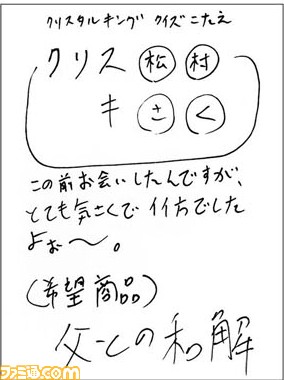 クリスタルキング クイズこたえ
クリス松村
キさく
この前お会いしたんですが、
とても気さくでイイ方でした
よぉ〜。
(希望商品)
父との和解
ファミ通.com